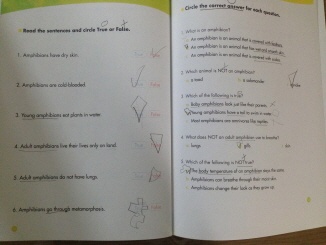 Read the sentences and circle True or False.
1. Amphibians have dry skin.
2. Amphibians are cold-blooded.
3. Young amphibians eat plants in water.
4. Adult amphibians live their lives only on land.
5. Adult amphibians do not have lungs.
6. Amphibians go through metamorphosis.
Circle the correct answer for each question.
1. What is an amphibian?
An amphibian is an animal that is covered with feathers.
An amphibian is an animal that has smooth skin.
An amphibian is an animal that is covered with scales.
2. Which animal is NOT an amphibian?
a toad
a salamander
3. Which of the following is
Baby amphibians look just like their parents.
Young amphibians have a tail to swim in water.
Most amphibians are
4. What does NOT an adult amphibian use to breathe?
lungs
gills
skin
5. Which of the following is NOT true?
The body temperature of an amphibian stays the same.
Amphibians can breathe through their moist skin.
Amphibians change their look as they grow up.